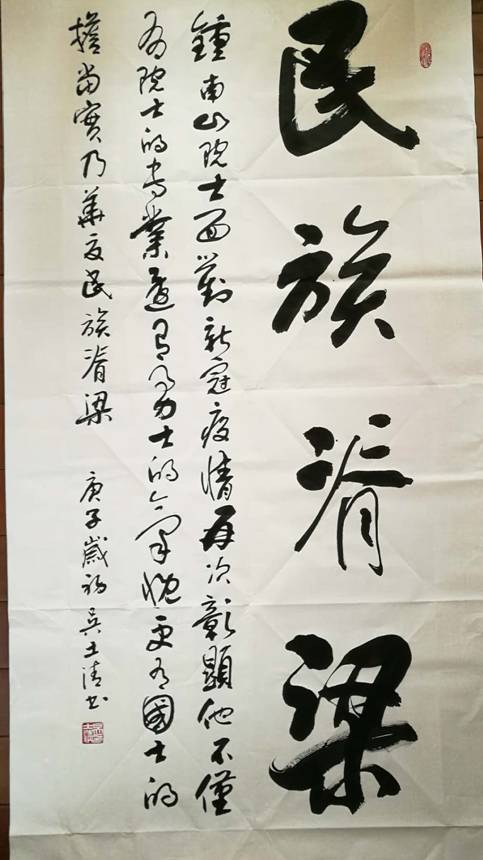 民族脊梁
鍾南山院士面對新冠疫情再次彰顯他不僅
有院士的专業還有勇士的氣概更有國士的
擔當實乃華夏民族脊梁 庚子歲初吴士清书